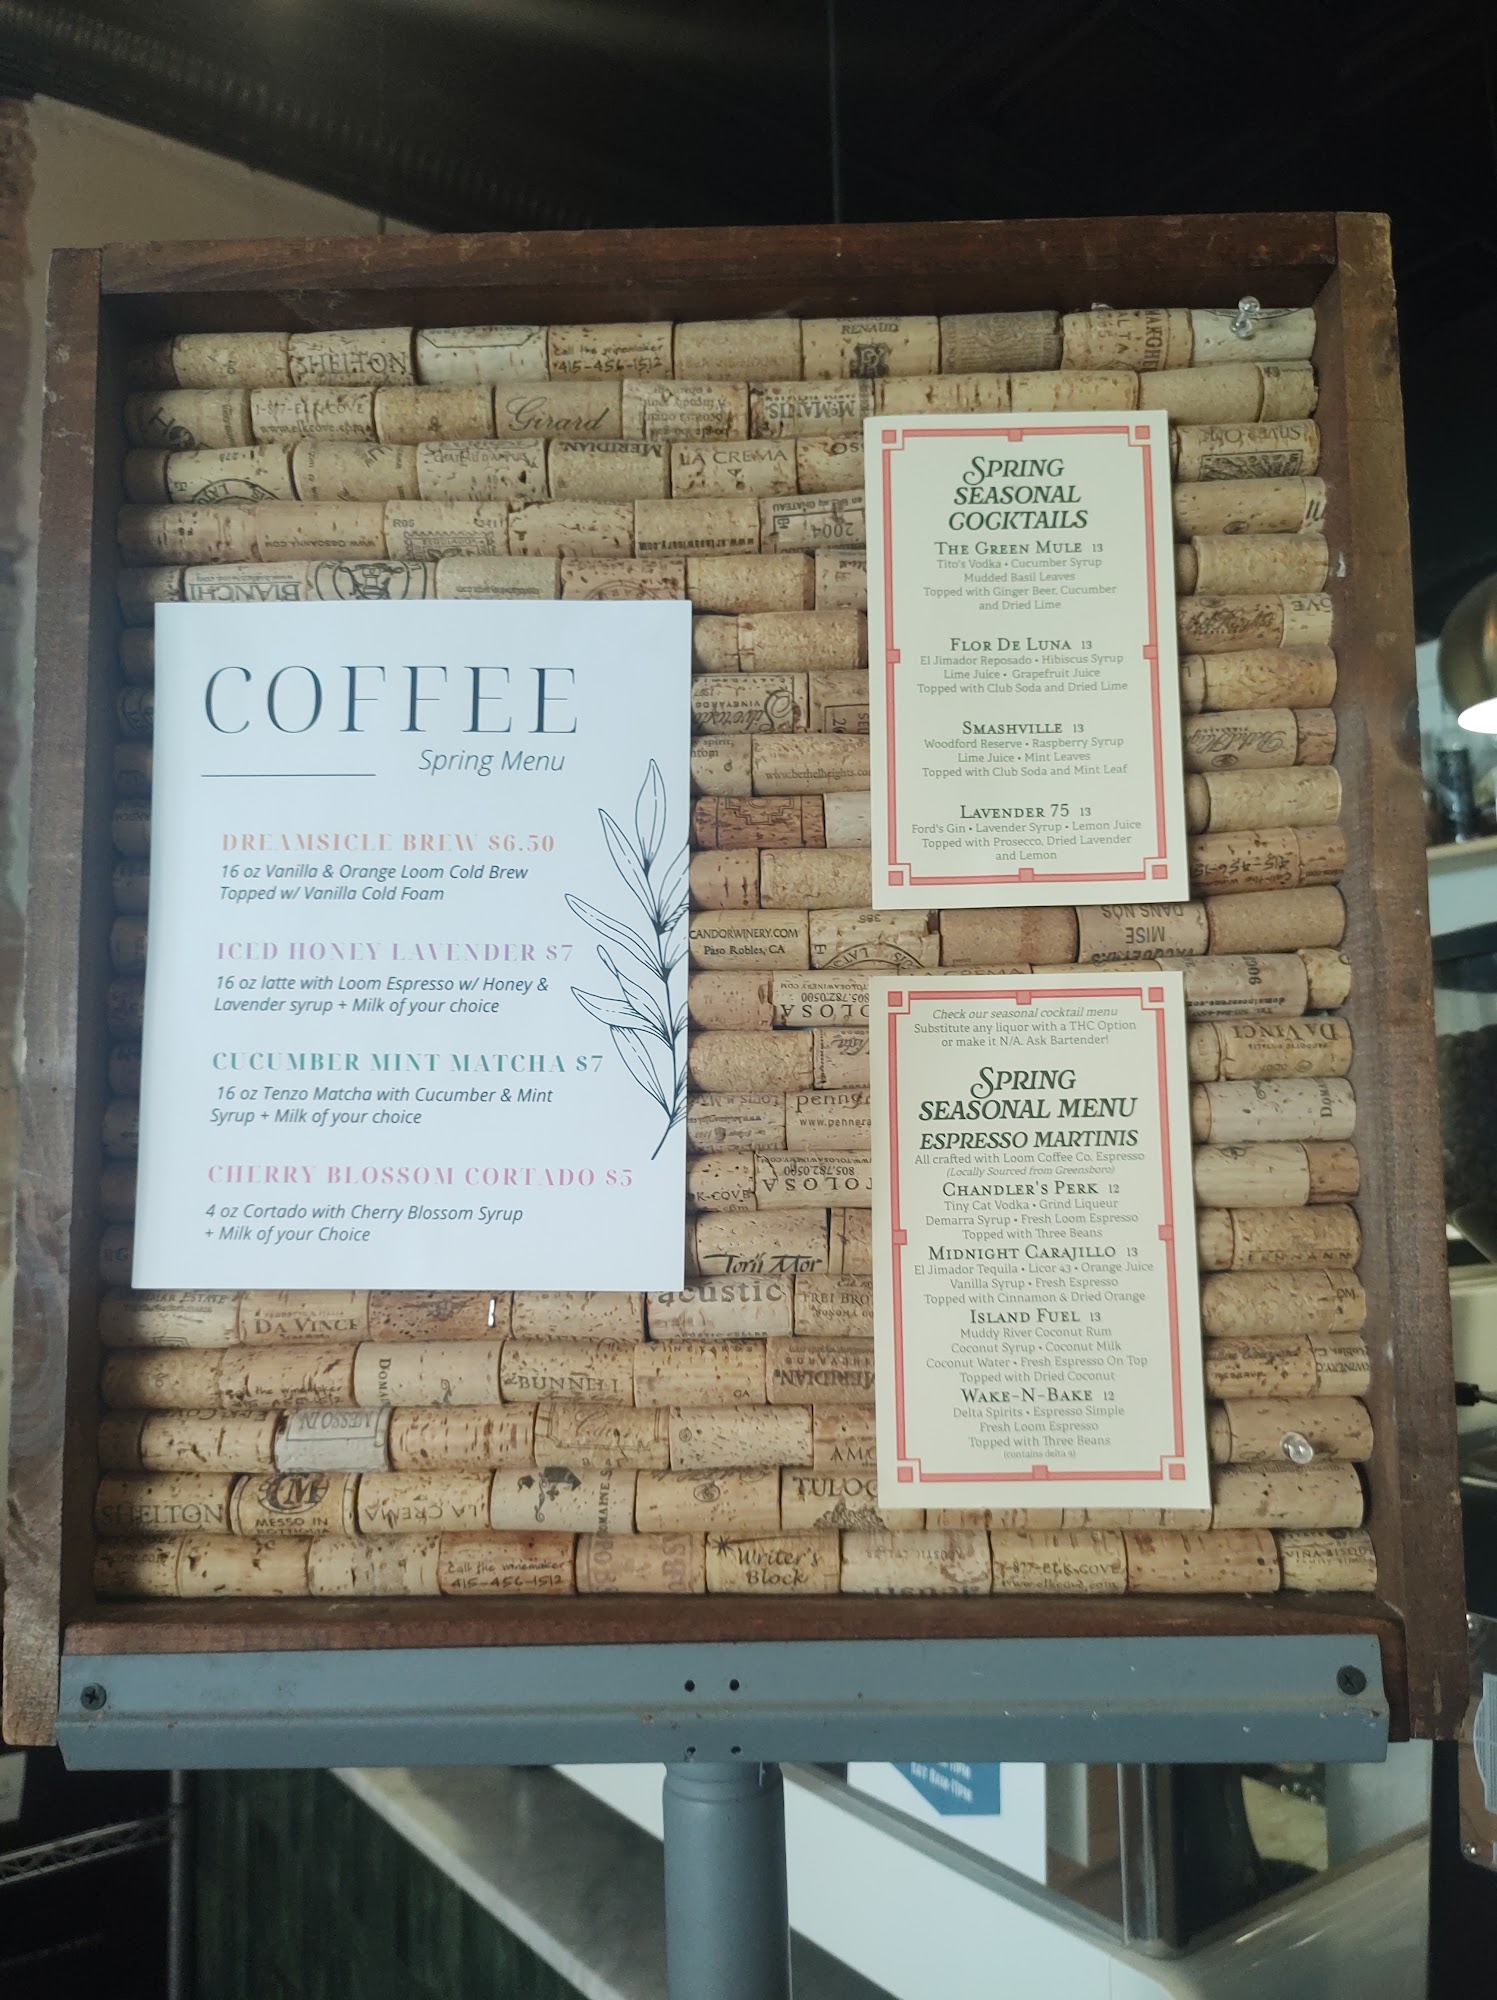 COFFEE
Spring Menu
DREAMSICLE BREW $6.50
16 oz Vanilla & Orange Loom Cold Brew
Topped w/ Vanilla Cold Foam
ICED HONEY LAVENDER $7
16 oz latte with Loom Espresso w/ Honey &
Lavender syrup + Milk of your choice
CUCUMBER MINT MATCHA $7
16 oz Tenzo Matcha with Cucumber & Mint
Syrup + Milk of your choice
CHERRY BLOSSOM CORTADO $5
4 oz Cortado with Cherry Blossom Syrup
+ Milk of your Choice
SPRING
SEASONAL
COCKTAILS
THE GREEN MULE 13
Tito's Vodka • Cucumber Syrup
Mudded Basil Leaves
Topped with Ginger Beer, Cucumber
and Dried Lime
FLOR DE LUNA 13
El Jimador Reposado • Hibiscus Syrup
Lime Juice • Grapefruit Juice
Topped with Club Soda and Dried Lime
SMASHVILLE 13
Woodford Reserve • Raspberry Syrup
Lime Juice • Mint Leaves
Topped with Club Soda and Mint Leaf
LAVENDER 75 13
Ford's Gin • Lavender Syrup • Lemon Juice
Topped with Prosecco, Dried Lavender
and Lemon
Check our seasonal cocktail menu
Substitute any liquor with a THC Option
or make it N/A. Ask Bartender!
SPRING
SEASONAL MENU
ESPRESSO MARTINIS
All crafted with Loom Coffee Co. Espresso
(Locally Sourced from Greensboro)
CHANDLER'S PERK 12
Tiny Cat Vodka • Grind Liqueur
Demarra Syrup • Fresh Loom Espresso
Topped with Three Beans
MIDNIGHT CARAJILLO 13
El Jimador Tequila • Licor 43 • Orange Juice
Vanilla Syrup • Fresh Espresso
Topped with Cinnamon & Dried Orange
ISLAND FUEL 13
Muddy River Coconut Rum
Coconut Syrup • Coconut Milk
Coconut Water • Fresh Espresso On Top
Topped with Dried Coconut
WAKE-N-BAKE 12
Delta Spirits • Espresso Simple
Fresh Loom Espresso
Topped with Three Beans
(contains delta 9)
SHELTON
Call the winemaker
415-456-1512
RENAUD
1-877-ELK-COVE
www.elkcove.com
Girard
McMANIS
MERIDIAN
LA CREMA
2004
BIANCHI
CANDORWINERY.COM
Paso Robles, CA
MISE
DA VINCI
805.782.0500
TOLOSA
Torii Mor
acustic
DA VINCE
BUNNELL
MERIDIAN
SHELTON
MESSO IN
LA CREMA
Call the winemaker
415-456-1512
Writer's
Block
1-877-ELK-COVE
www.elkcove.com